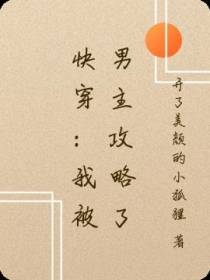 快穿：我被
男主攻略了
开了美颜的小狐狸 著